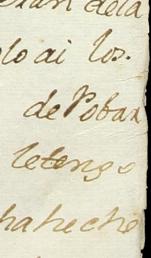 dela
lo ai los.
de Pobar
letengo
hahecho